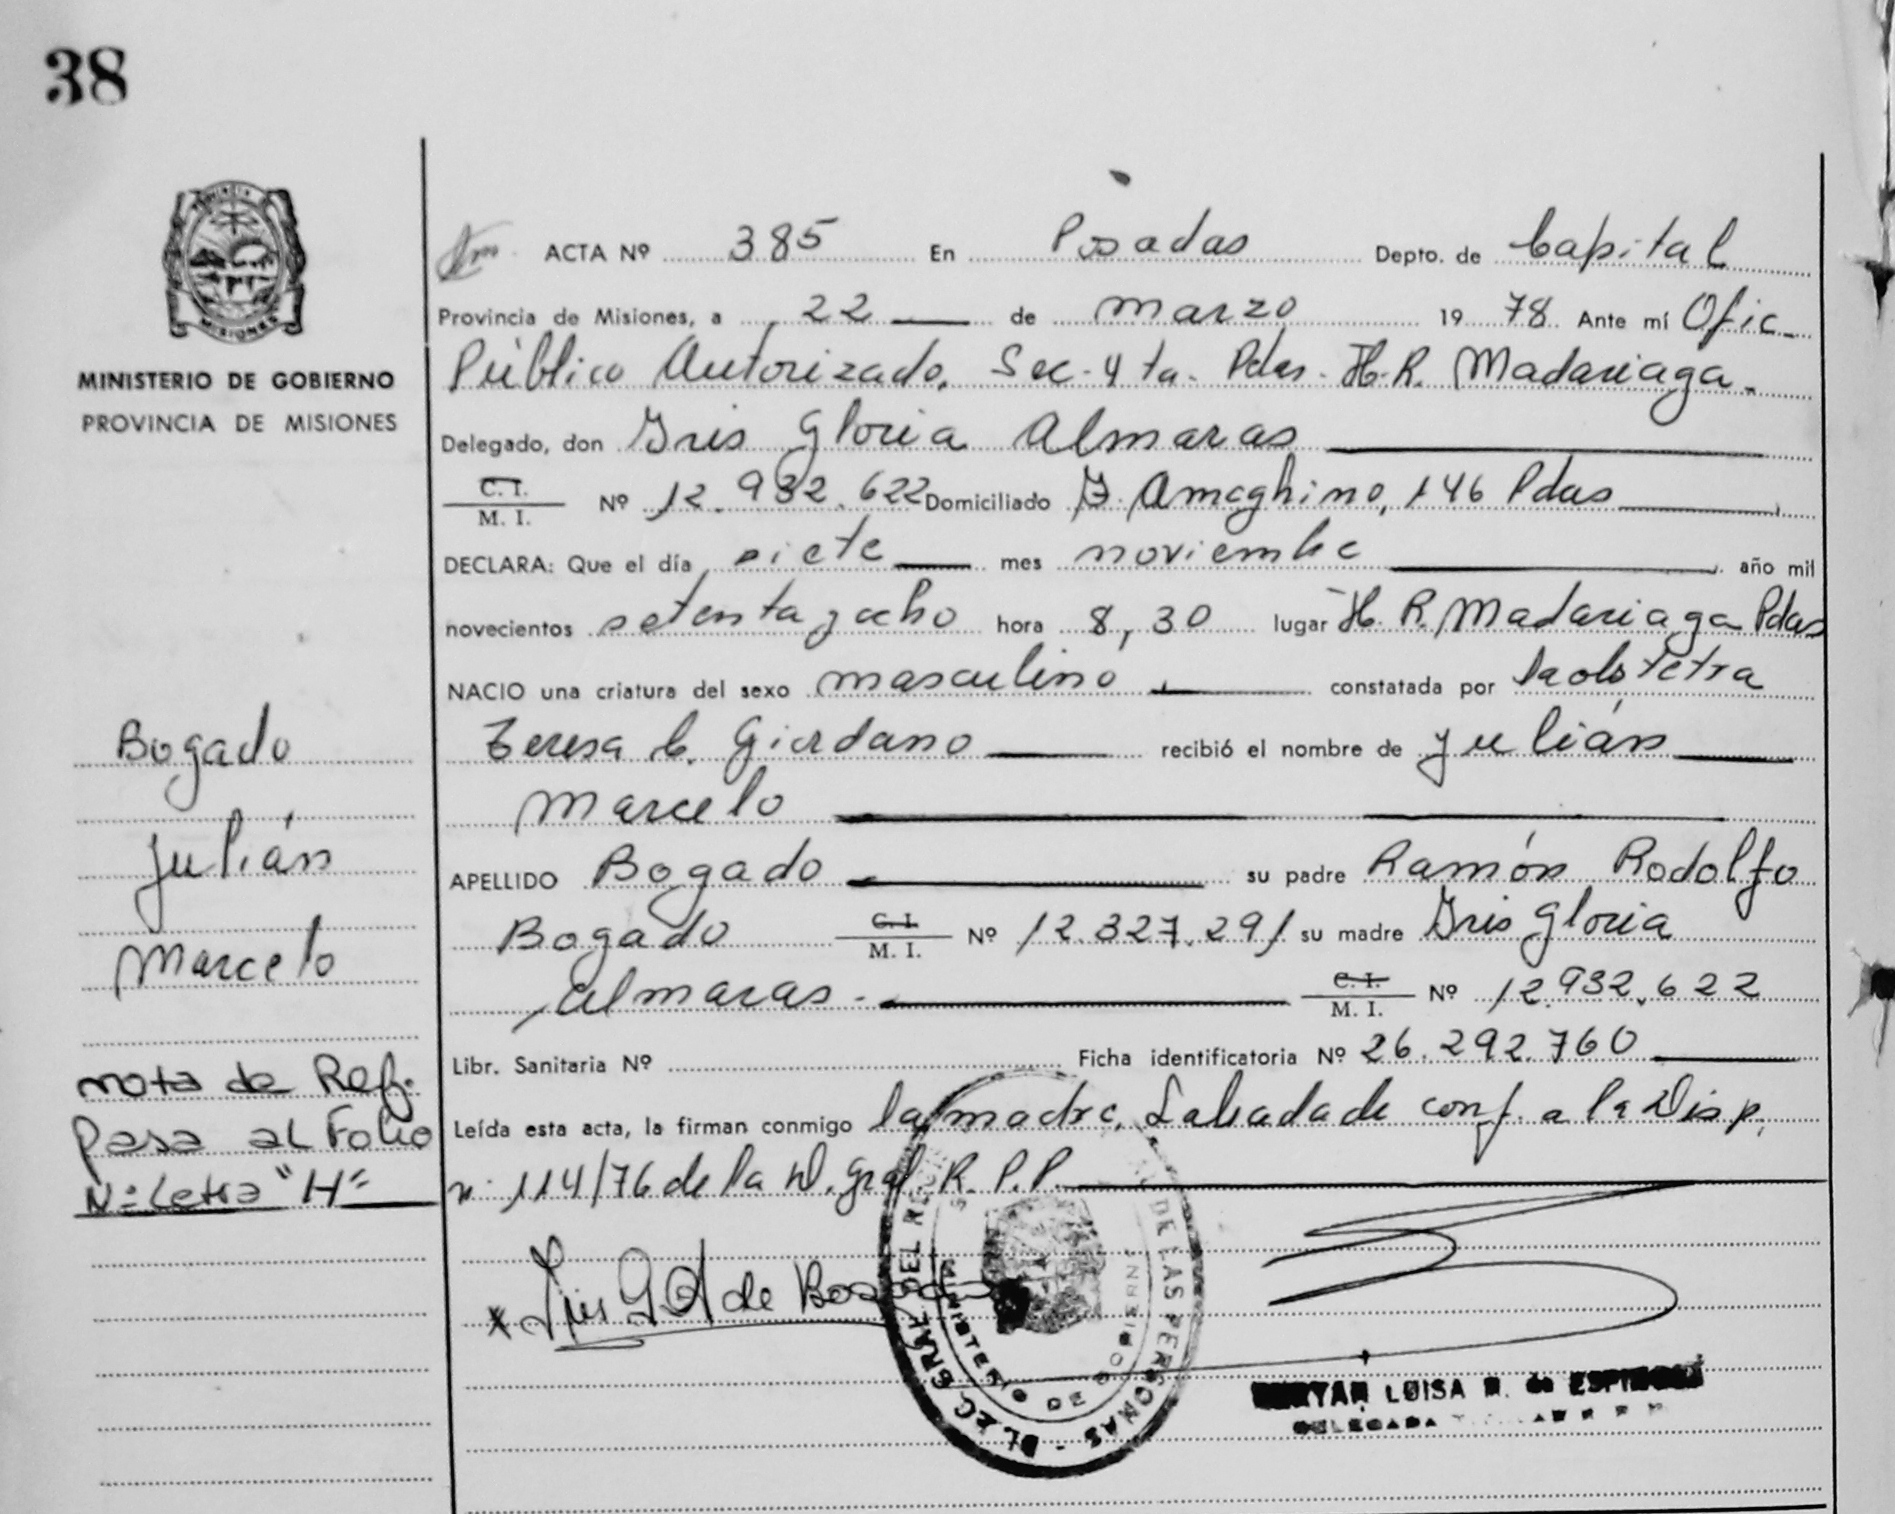 38
MISIONES
MINISTERIO DE GOBIERNO
PROVINCIA DE MISIONES
Bogado
Julián
Marcelo
nota de Ref.
Pasa al Folio
Nº Letra "H"
ACTA Nº 385 En Posadas Depto. de Capital
Provincia de Misiones, a 22 de marzo 19 78 Ante mí Ofic.
Público Autorizado, Sec. 4 ta. Pdas. H. R. Madariaga.
Delegado, don Iris Gloria Almaras
C. I.
M. I. Nº 12.932.622 Domiciliado F. Ameghino, 146 Pdas
DECLARA: Que el día siete mes noviembre año mil
novecientos setenta y ocho hora 8,30 lugar H. R. Madariaga Pdas
NACIO una criatura del sexo masculino constatada por la obstetra
Teresa C. Giordano recibió el nombre de Julián
Marcelo
APELLIDO Bogado su padre Ramón Rodolfo
Bogado C. I. M. I. Nº 12.327.291 su madre Iris Gloria
Almaras. C. I. M. I. Nº 12.932.622
Libr. Sanitaria Nº Ficha identificatoria Nº 26.292.760
Leída esta acta, la firman conmigo la madre, Labrada de conf. a la Disp.
n. 114/76 de la D. Gral. R. P. P.
Iris G A de Bogado
DEL REG DE LAS PERSONAS
MINISTERIO DE GOBIERNO
LUISA R. de
DELEGADA